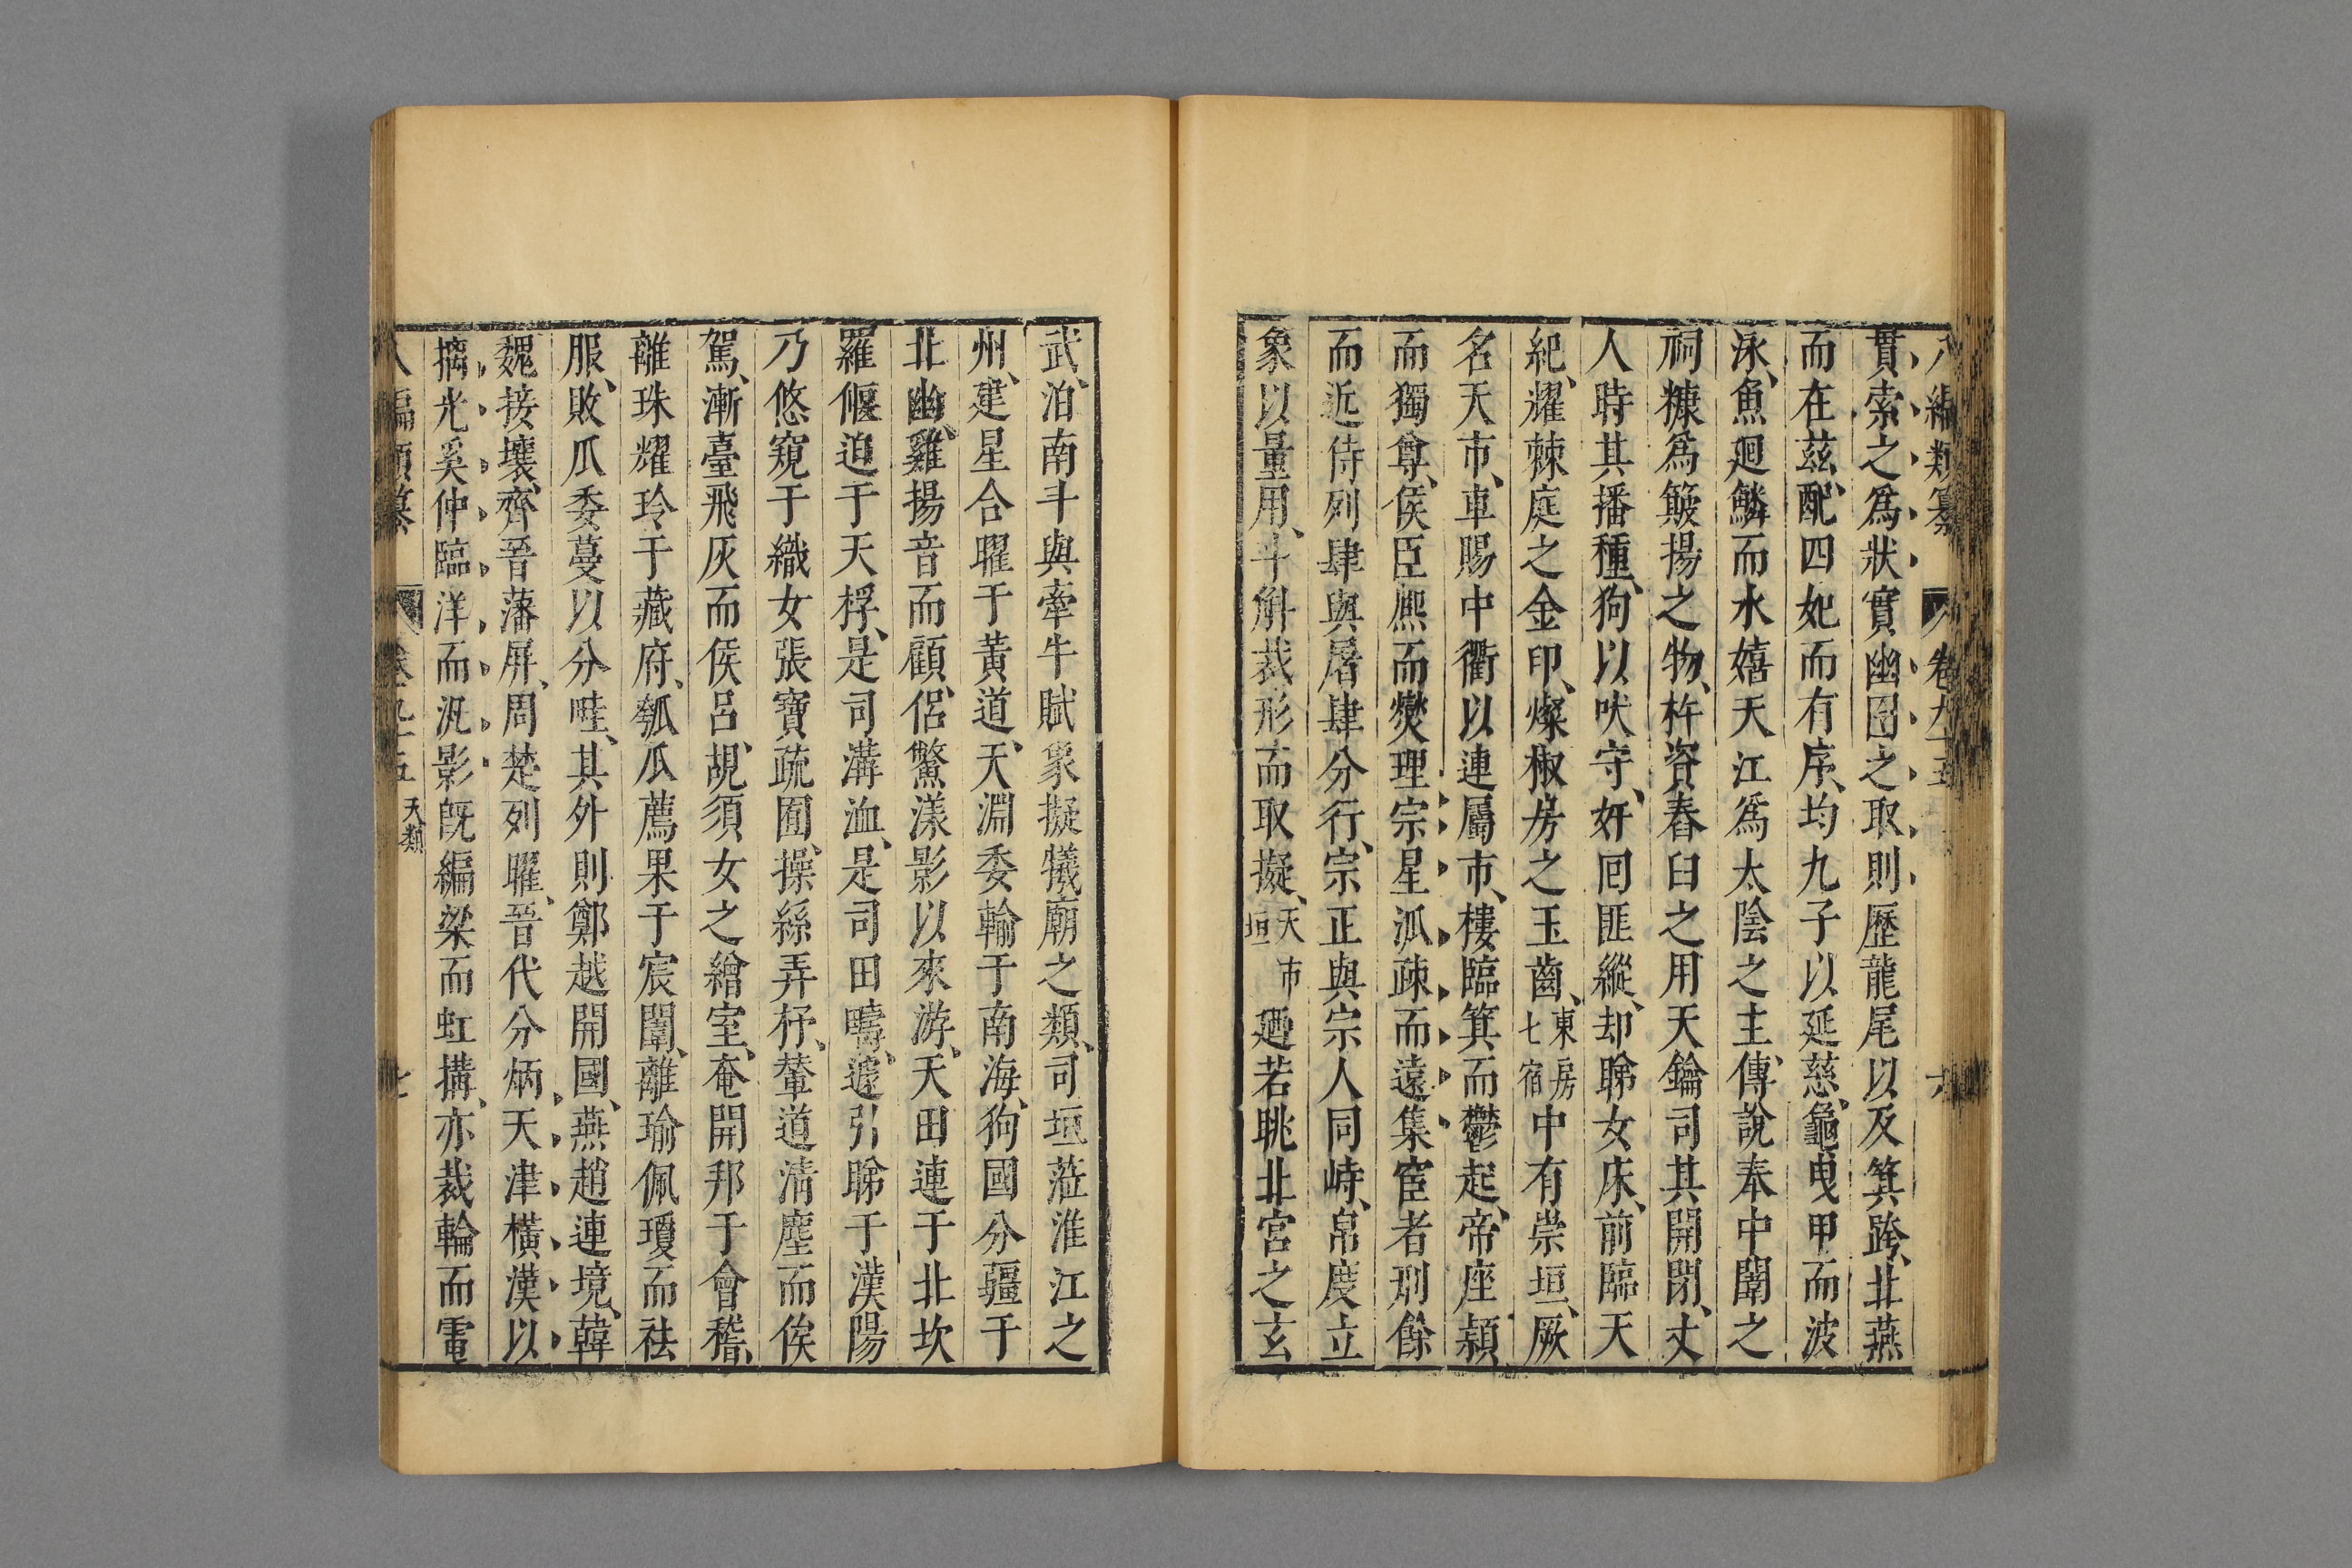 八編類纂 卷九十五 六
貫索之爲狀實幽圄之取則歷龍尾以及箕跨、北燕
而在茲、配四妃而有序、均九子以延慈、龜曳甲而波
泳、魚𢌞鱗而水嬉天江爲太陰之主、傳說奉中闈之
祠糠爲簸揚之物、杵資舂臼之用天鑰司其開閉、丈
人時其播種、狗以吠守、奸囘匪縱、却睇女床、前臨天
紀、耀棘庭之金印、燦椒房之玉齒、東房七宿中有崇垣、厥
名天市、車賜中衢以連屬市、樓臨箕而鬱起、帝座潁
而獨尊、侯臣熙而爕理宗星泒疎而遠集宦者刑餘
而近侍列肆與屠肆分行、宗正與宗人同峙、帛度立
象以量用、斗斛裁形而取擬、天市垣𢌞若眺北宮之玄
武、泊南斗與牽牛賦象擬犧廟之類、司垣蒞淮江之
州、建星合曜于黃道、天淵委輸于南海、狗國分疆于
北幽、雞揚音而顧侶鱉漾影以來游、天田連于北坎
羅偃迫于天桴、是司溝洫、是司田疇、遠引睇于漢陽
乃悠窺于織女張寶疏囿、操絲弄杼、輦道清塵而俟
駕、漸臺飛灰而候呂、覘須女之繒室、奄開邦于會稽、
離珠耀玲于藏府、瓠瓜薦果于宸闈、離瑜佩瓊而袪
服、敗瓜委蔓以分畦、其外則鄭越開國、燕趙連境、韓
魏接壤、齊晉藩屏、周楚列曜、晉代分炳、天津橫漢以
摛光奚仲臨洋而汎影旣編梁而虹搆、亦裁輪而電
八編類纂 卷九十五 天類 七